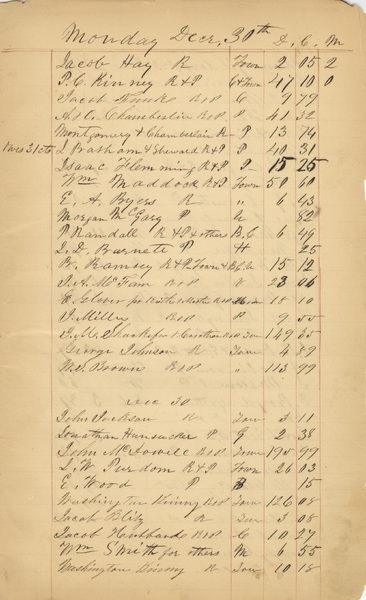 Monday Decr, 30th D. C. M
Jacob Hay R Town 2 05 2
P. C. Kinney R&P C&Town 47 10 0
Jacob Funk R&P C 9 79
A & C. Chamberlin R&P P 41 32
Montgomery & Chamberlain R P 13 74
Dec 31st L Basham & Steward R&P P 40 31
Isaac Flemming R&P P 15 25
Wm Maddock R&P Town 50 60
E. A. Byers R " 6 43
Morgan McGary P 82
P Randall R&P & others B.C 6 49
L. D. Burnett P H 25
B. Ramsey R&P Town & B.C. 15 12
J. A. McFam R&P 23 06
Glover R&P 18 10
J Miller R&P P 9 55
Town 149 35
George Johnson R Town 4 89
Brown R&P " 113 99
Dec 30
John Jackson R Town 3 11
Jonathan Hunsucker P G 2 38
John McDowell R&P Town 195 99
L. W. Purdom R&P Town 26 03
E. Wood P B 15
Washington Dining R&P Town 126 08
Jacob Blitz R Town 3 08
Jacob Hubbard R&P C 10 27
Wm Smith for others M 6 55
Washington Dining R Town 10 18